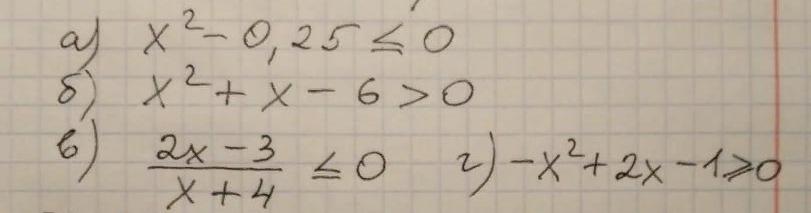 а) x² - 0,25 ≤ 0
б) x² + x - 6 > 0
в) (2x - 3)/(x + 4) ≤ 0 г) -x² + 2x - 1 ≥ 0